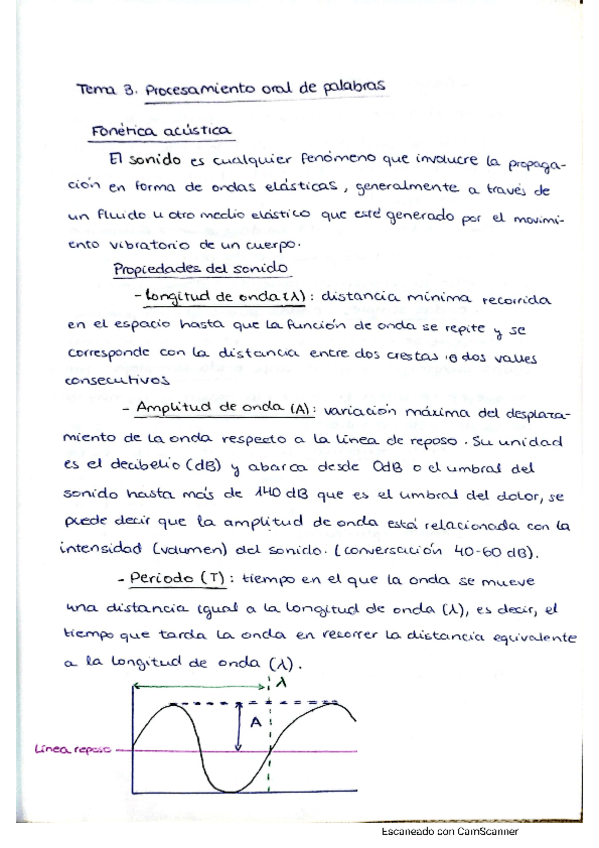 Tema 3. Procesamiento oral de palabras
Fonética acústica
El sonido es cualquier fenómeno que involucre la propaga-
ción en forma de ondas elásticas, generalmente a través de
un fluido u otro medio elástico que esté generado por el movimi-
ento vibratorio de un cuerpo.
Propiedades del sonido
- Longitud de onda (λ): distancia mínima recorrida
en el espacio hasta que la función de onda se repite y se
corresponde con la distancia entre dos crestas o dos valles
consecutivos
- Amplitud de onda (A): variación máxima del desplaza-
miento de la onda respecto a la línea de reposo. Su unidad
es el decibelio (dB) y abarca desde 0dB o el umbral del
sonido hasta más de 140 dB que es el umbral del dolor, se
puede decir que la amplitud de onda está relacionada con la
intensidad (volumen) del sonido. (conversación 40-60 dB).
- Periodo (T): tiempo en el que la onda se mueve
una distancia igual a la longitud de onda (λ), es decir, el
tiempo que tarda la onda en recorrer la distancia equivalente
a la longitud de onda (λ).
λ
A
Línea reposo
Escaneado con CamScanner